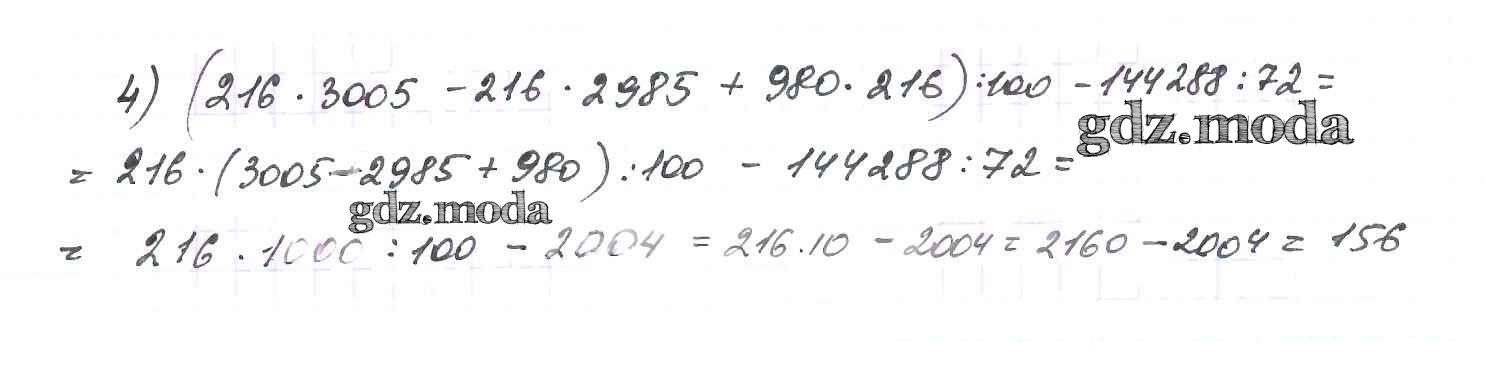 4) (216 · 3005 - 216 · 2985 + 980 · 216) : 100 - 144288 : 72 =
gdz.moda
= 216 · (3005 - 2985 + 980) : 100 - 144288 : 72 =
gdz.moda
= 216 · 1000 : 100 - 2004 = 216 · 10 - 2004 = 2160 - 2004 = 156